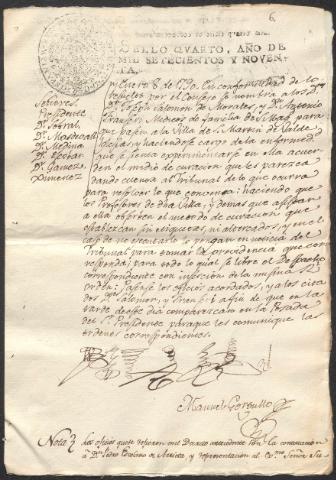 6.
SELLO QVARTO, AÑO DE
MIL SETECIENTOS Y NOVEN-
TA.
Señores
Presidente
Dr. Sobral
Dr.
Dr. Medina
Dr. Escobar
Dr. Gamez
Ximenez
y Enero 8 de 1790. En conformidad de lo
por el Consejo se nombra a los Drs
Dn. Joseph Salomon de Morales, y Dn. Antonio
Franseri Medicos de familia de S. Mag. para
que pasen a la Villa de Sn. Martin de Valde
Iglesias, y haciendose cargo de la enfermedad
que se esta experimentando en ella acuer
den el medio de curacion que les parezca
dando cuenta al Tribunal de lo que ocurra
para resolver lo que convenga: haciendo que
los Profesores de dha Villa, y demas que asistan
a ella observen el metodo de curacion que
establezcan sin etiquetas, ni altercados, y en el
caso de no executarlo lo pongan en noticia del
Tribunal para tomar la providencia que cor
responda; para todo lo qual se libre el Despacho
correspondiente con insercion de la misma Rl.
orden: Pasense los oficios acordados, y a los cita
dos Drs. Salomon, y Franseri a fin de que en la
tarde de este dia comparezcan en la Posada
del Sr. Presidente para que les comunique las
ordenes correspondientes.
Manuel Gorgullo
Nota
Los oficios que se refieren en el Decreto antecedente
a Dn. Pedro Escolano de Arrieta, y representacion al Exmo. Señor